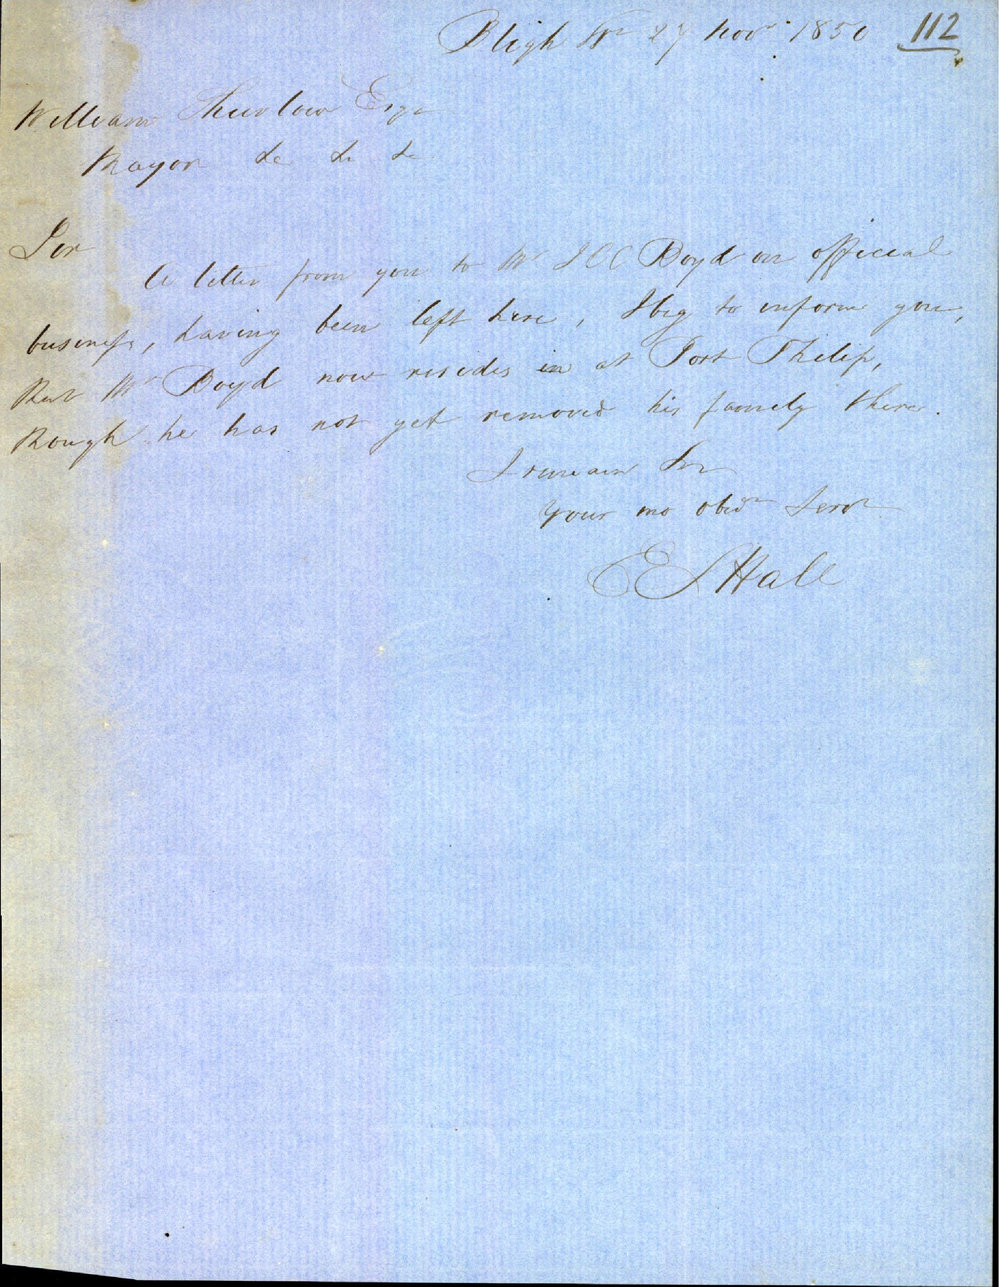 Bligh St 27 Novr 1850 112
William Thurlow Esqr
Mayor &c &c &c
Sir
A letter from you to Mr J C C Boyd on official
business, having been left here, I beg to inform you,
that Mr Boyd now resides in at Port Philip,
though he has not yet removed his family there.
I remain Sir
Your mo obdt Servt
E S Hall